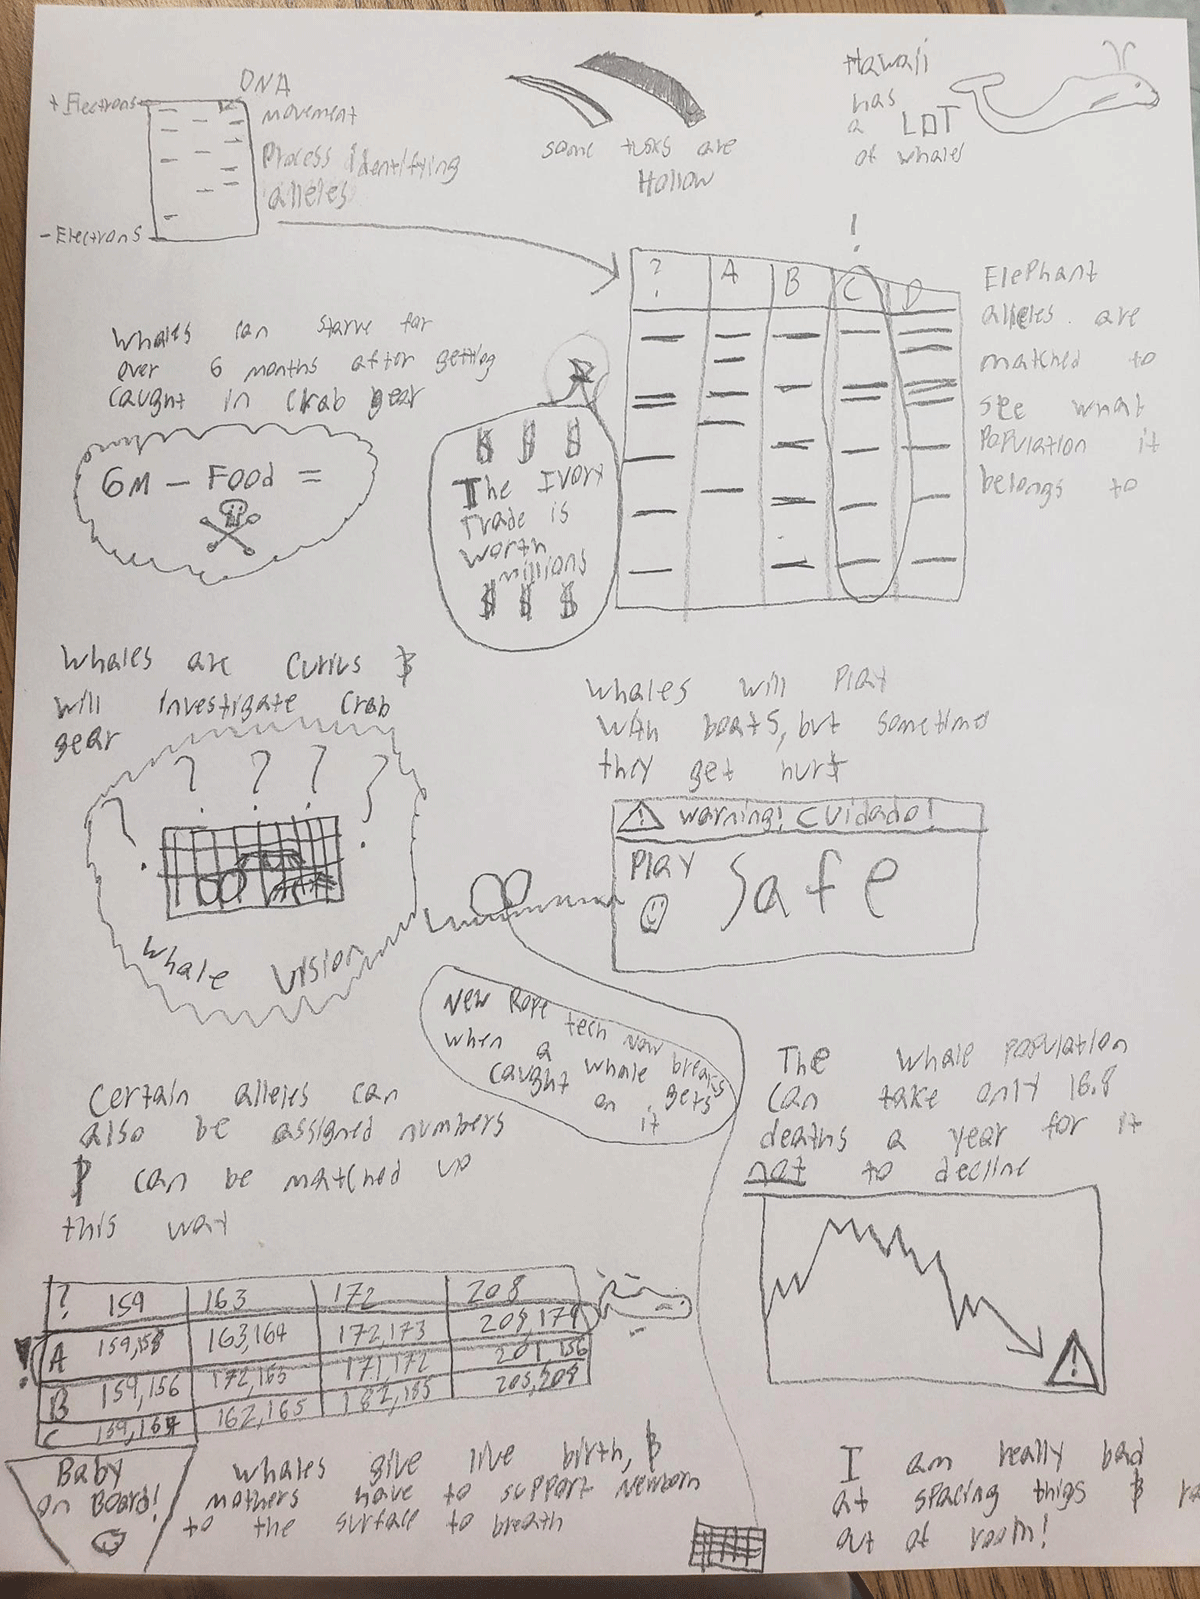 DNA
movement
Process identifying
alleles
+ Electrons
- Electrons
some tusks are
Hollow
Hawaii
has
a LOT
of whales
!
? A B C D
Elephant
alleles are
matched to
see what
population it
belongs to
Whales can starve for
over 6 months after getting
caught in crab gear
6M - Food =
$ $ $
The Ivory
Trade is
worth
millions
$ $ $
Whales are curius &
will investigate crab
gear
? ? ? ? ?
Whale Vision
Whales will Play
with boats, but sometimes
they get hurt
! warning! Cuidado!
Play Safe
New Rope tech now breaks
when a caught whale gets
on it
The whale population
can take only 16.8
deaths a year for it
not to decline
!
Certain alleles can
also be assigned numbers
& can be matched up
this way
? 159 163 172 208
! A 159,158 163,164 172,173 208,179
B 159,156 172,163 171,172 201,156
C 162,165 182,185 205,208
Baby
on Board!
whales give live birth, &
mothers have to support newborn
to the surface to breath
I am really bad
at spacing thigs &
out of room!